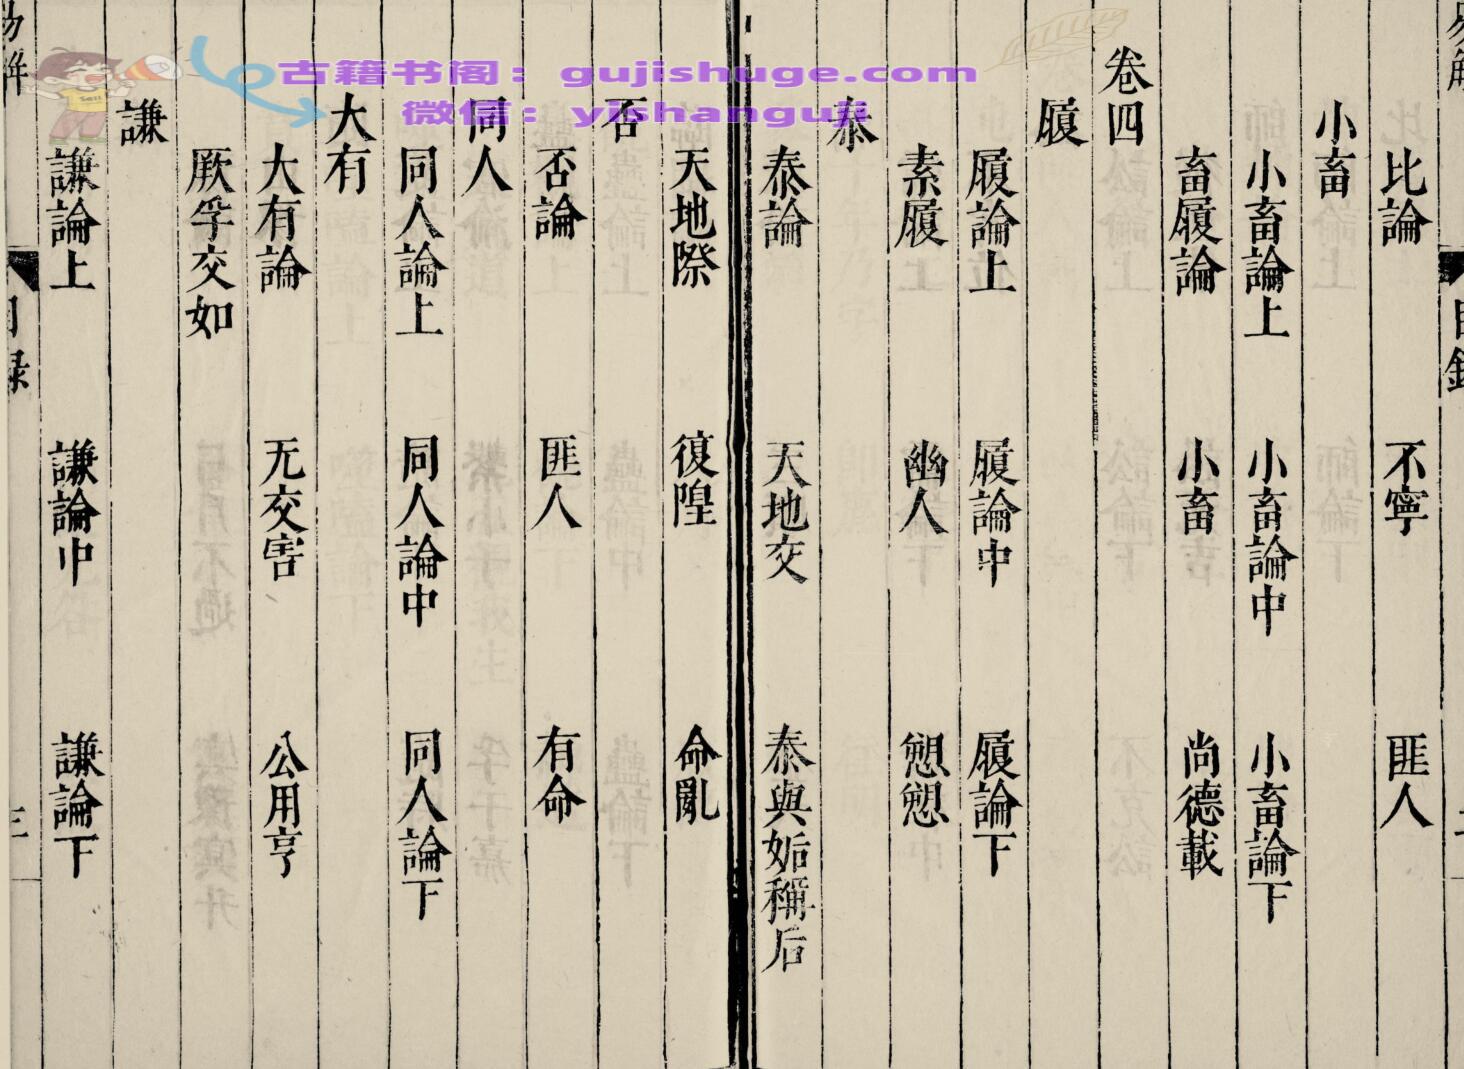 比論 不寧 匪人
小畜
小畜論上 小畜論中 小畜論下
畜履論 小畜 尚德載
卷四
履
履論上 履論中 履論下
素履 幽人 愬愬
泰
泰論 天地交 泰與姤稱后
天地際 復隍 命亂
否
否論 匪人 有命
同人
同人論上 同人論中 同人論下
大有
大有論 无交害 公用亨
厥孚交如
謙
謙論上 謙論中 謙論下
目録 三
古籍书阁：gujishuge.com
微信：yishanguji